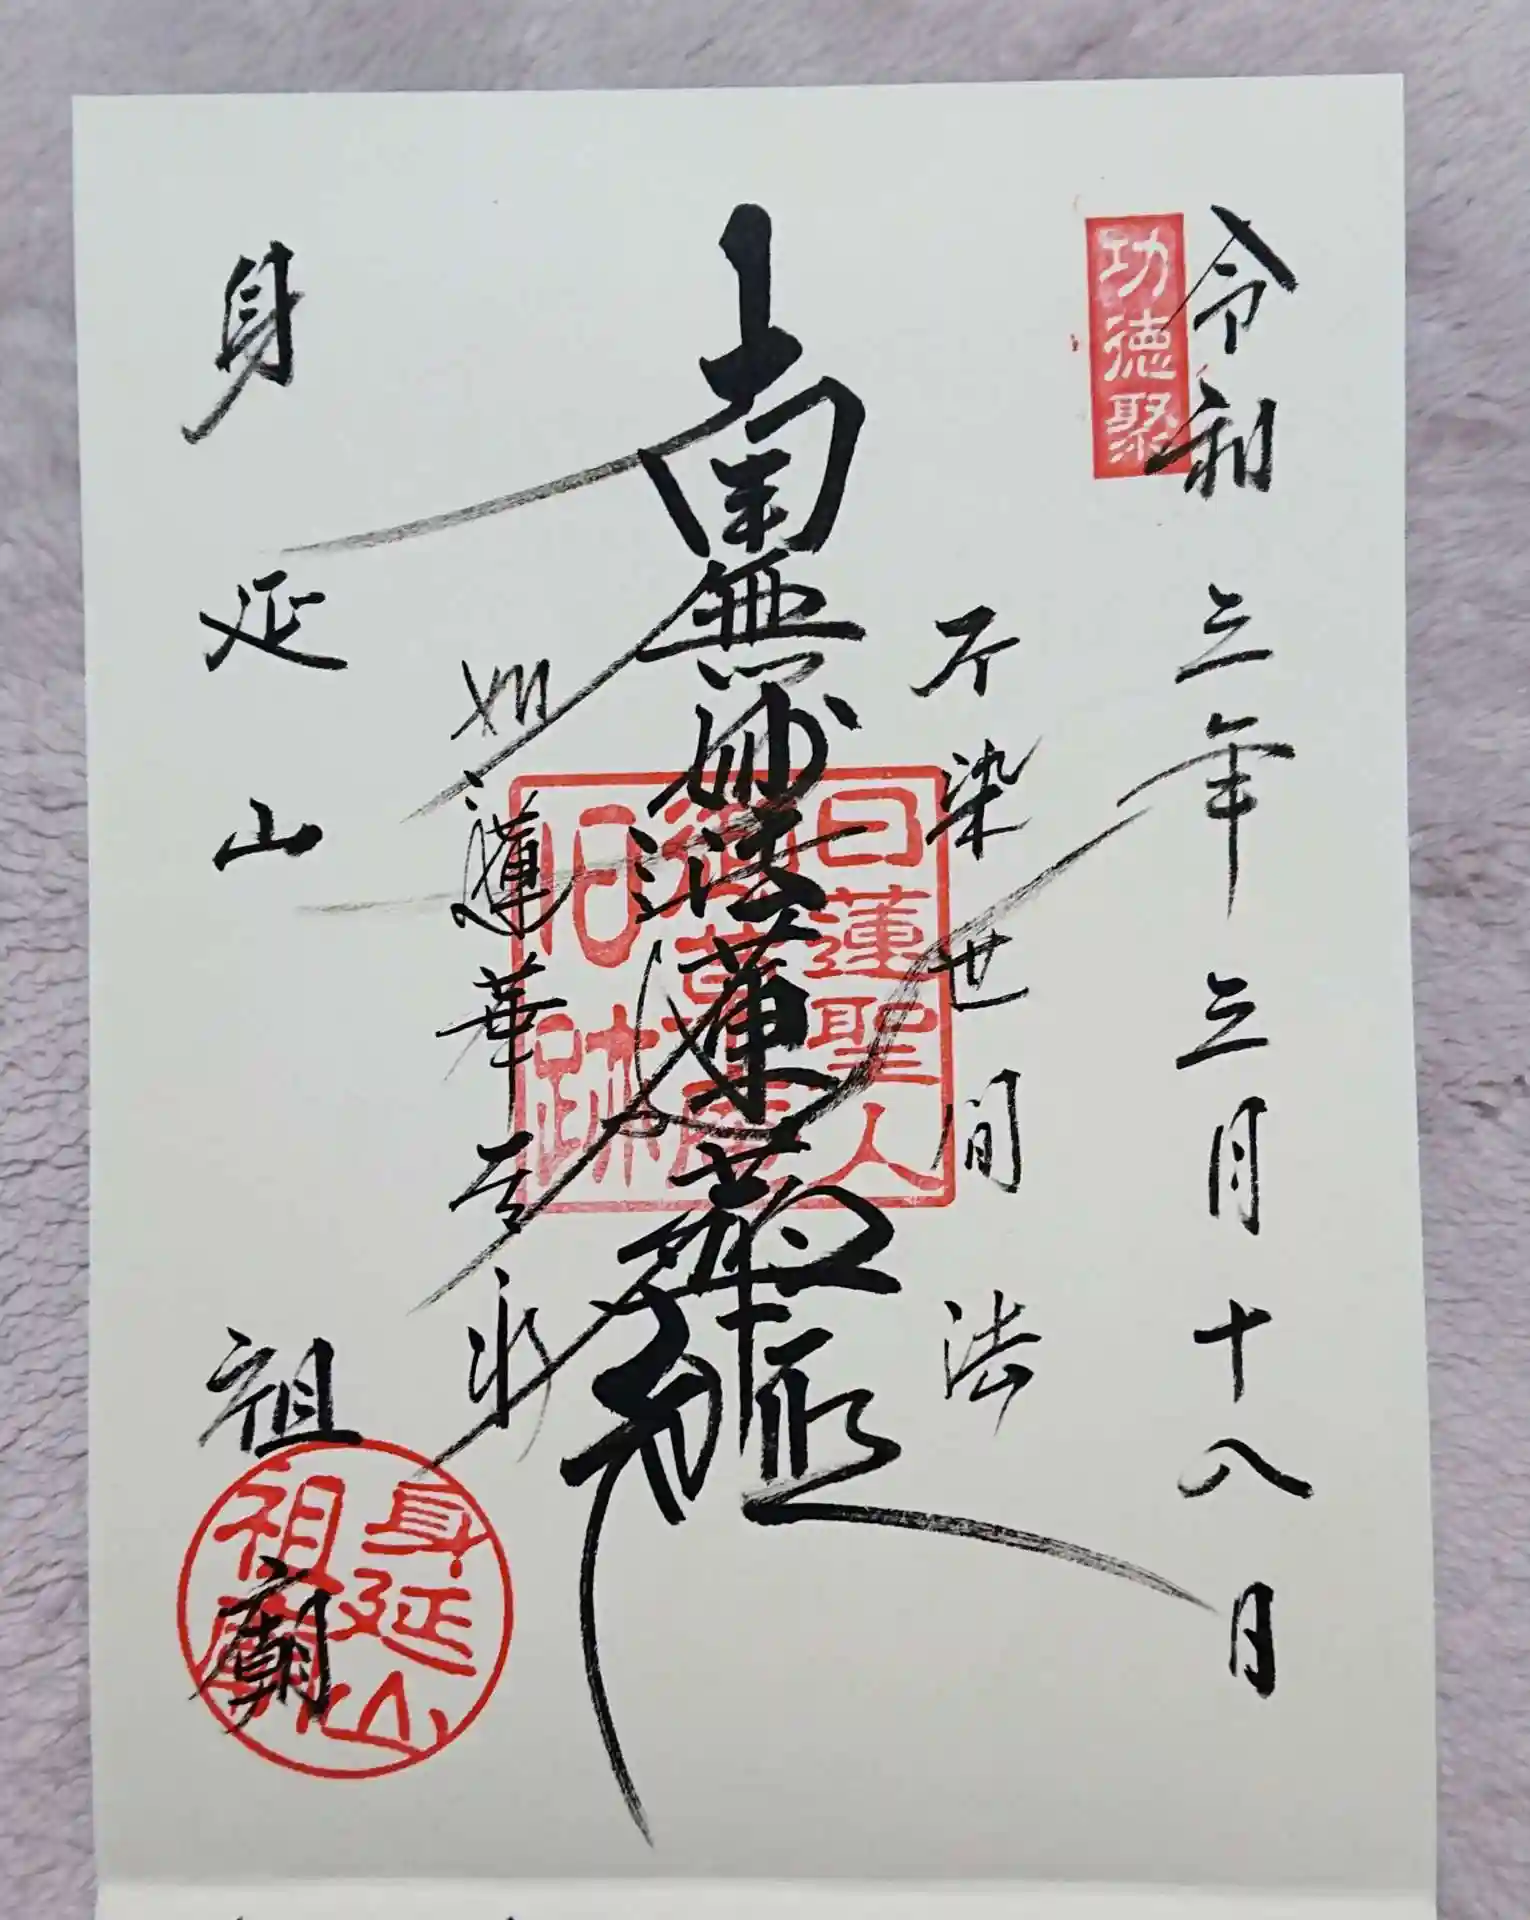 功徳聚
令和三年三月十八日
不染世間法
南無妙法蓮華經
日蓮聖人
御草庵
旧跡
如蓮華在水
身延山
祖廟
身延山
祖廟